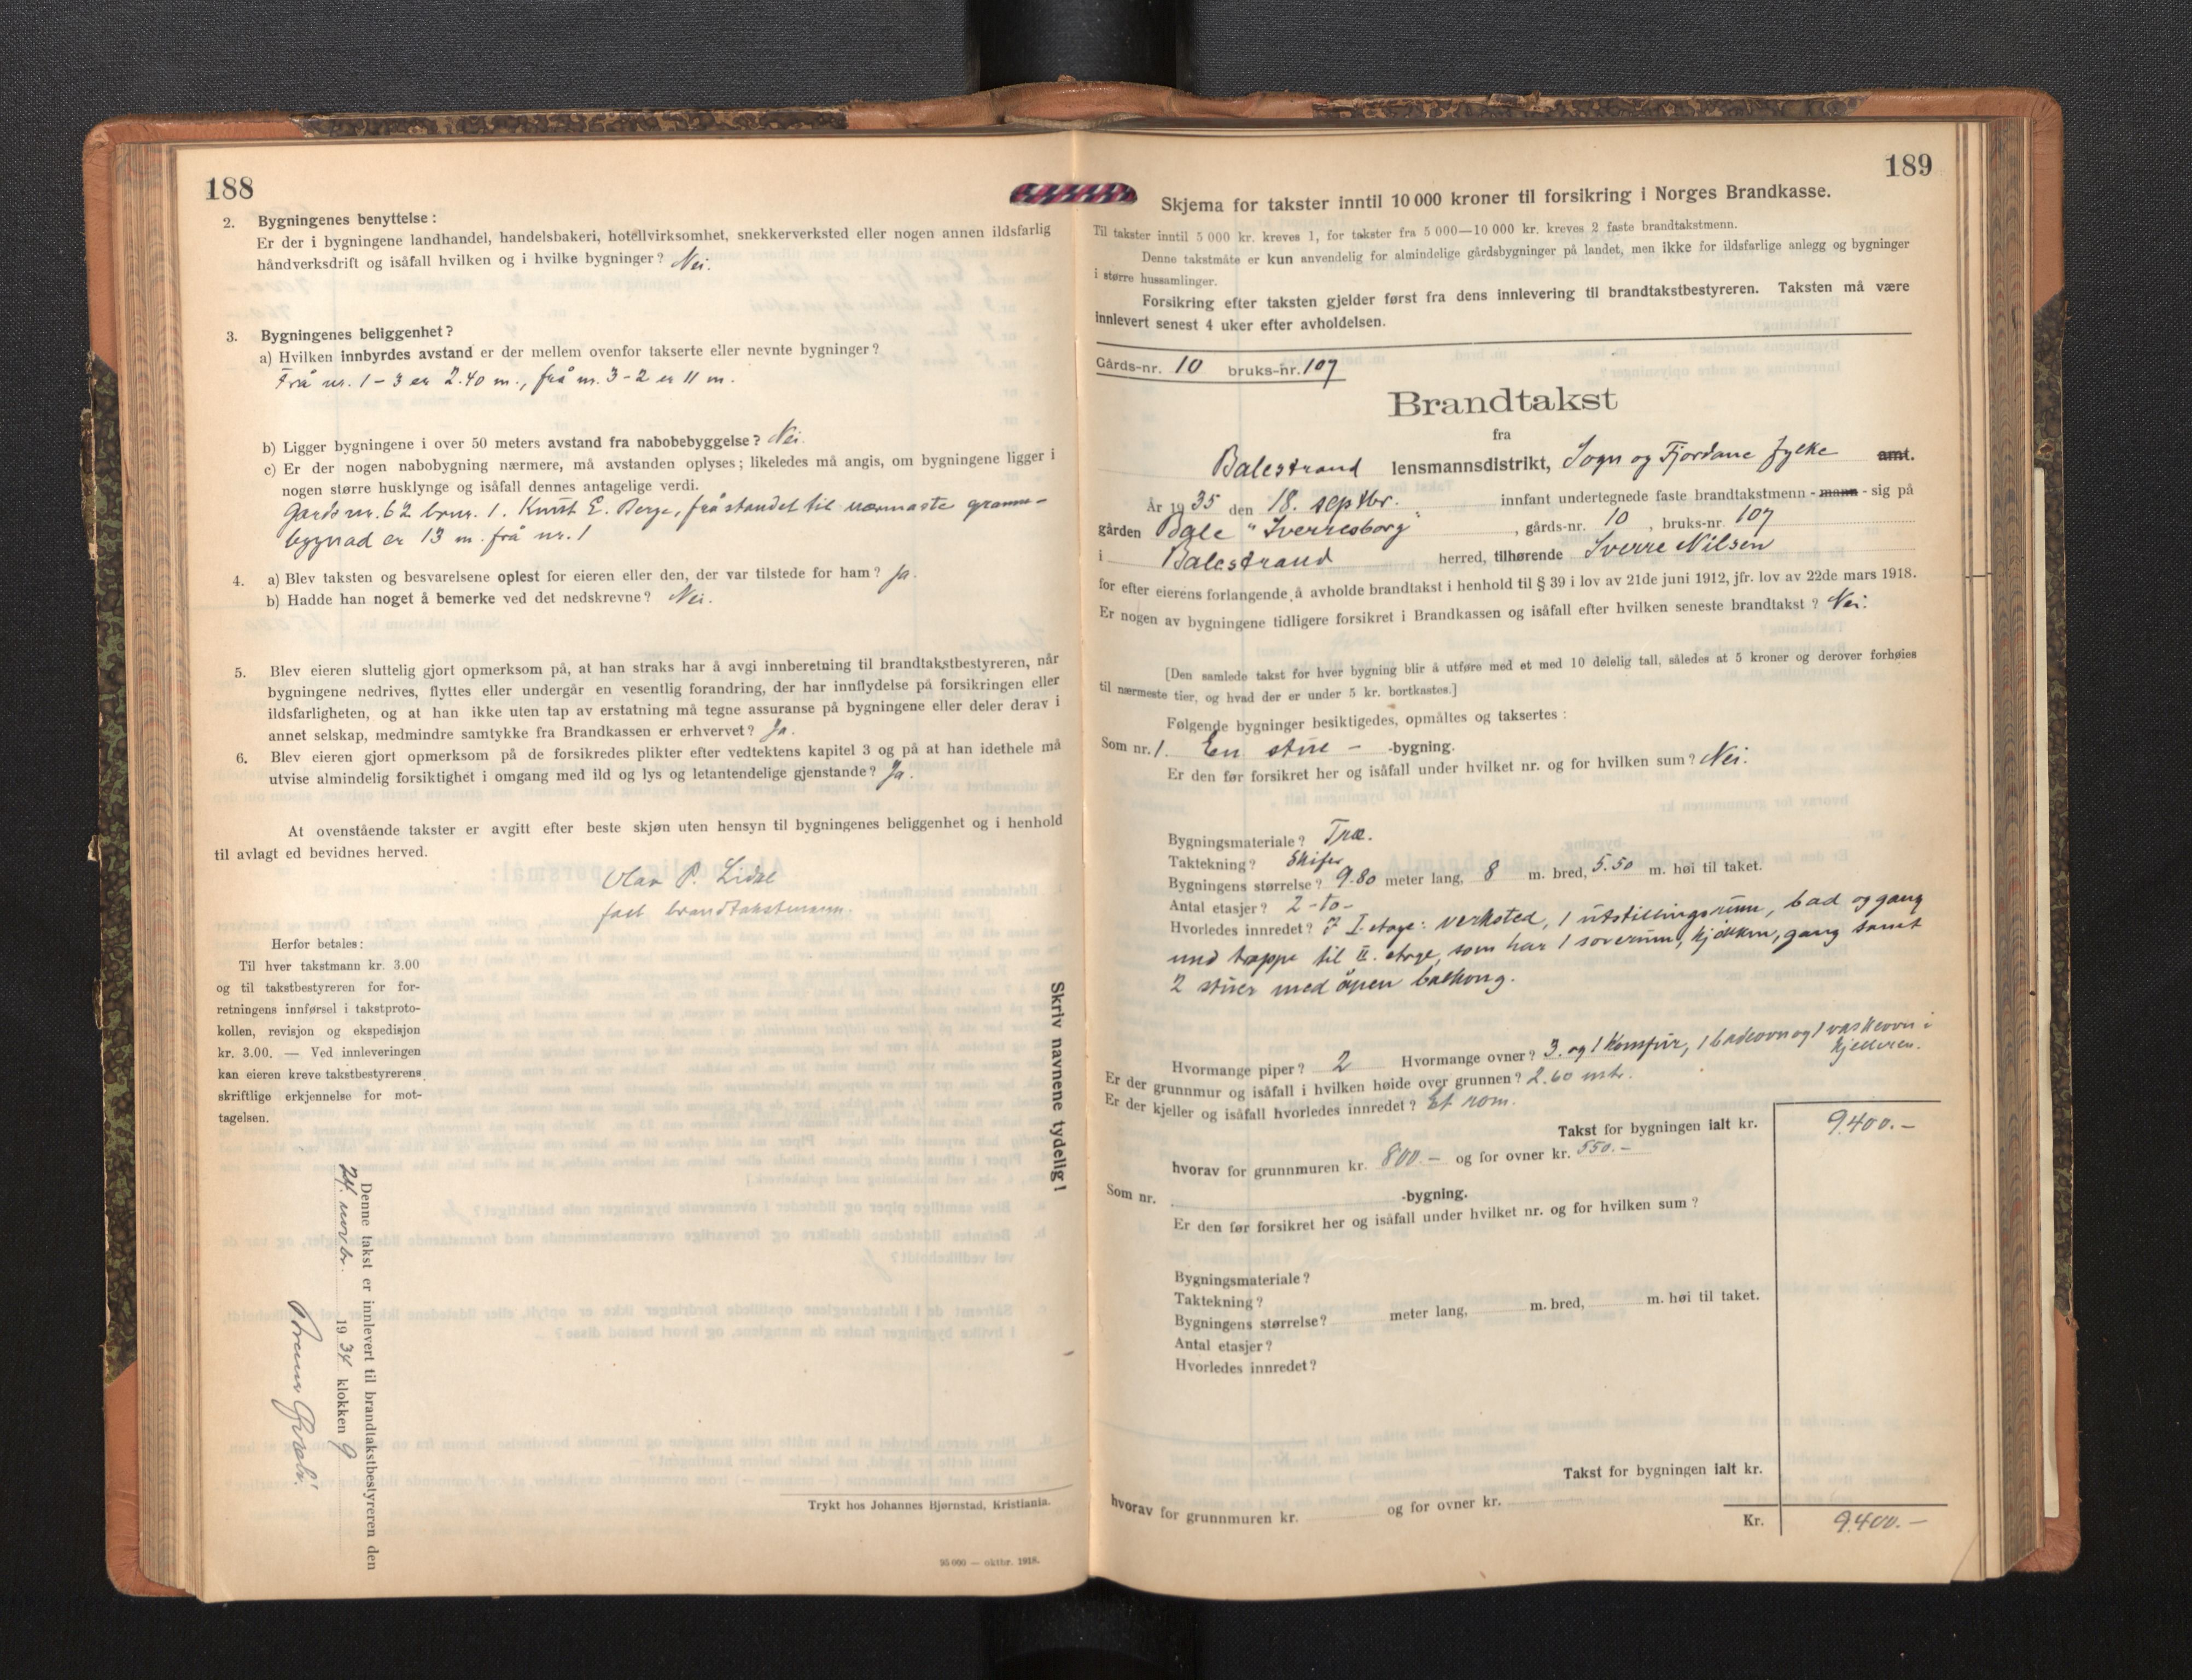 188
2. Bygningenes benyttelse:
Er der i bygningene landhandel, handelsbakeri, hotellvirksomhet, snekkerverksted eller nogen annen ildsfarlig
håndverksdrift og isåfall hvilken og i hvilke bygninger? Nei.
3. Bygningenes beliggenhet?
a) Hvilken innbyrdes avstand er der mellem ovenfor takserte eller nevnte bygninger?
Frå nr. 1 - 3 er 2.40 m., frå nr. 3 - 2 er 11 m.
b) Ligger bygningene i over 50 meters avstand fra nabobebyggelse? Nei.
c) Er der nogen nabobygning nærmere, må avstanden oplyses; likeledes må angis, om bygningene ligger i
nogen større husklynge og isåfall dennes antagelige verdi.
Gards nr. 62 brnr. 1. Knut E. Berge, fråstandet til nærmaste granne-
bygnad er 13 m. frå nr. 1
4. a) Blev taksten og besvarelsene oplest for eieren eller den, der var tilstede for ham? Ja.
b) Hadde han noget å bemerke ved det nedskrevne? Nei.
5. Blev eieren sluttelig gjort opmerksom på, at han straks har å avgi innberetning til brandtakstbestyreren, når
bygningene nedrives, flyttes eller undergår en vesentlig forandring, der har innflydelse på forsikringen eller
ildsfarligheten, og at han ikke uten tap av erstatning må tegne assuranse på bygningene eller deler derav i
annet selskap, medmindre samtykke fra Brandkassen er erhvervet? Ja.
6. Blev eieren gjort opmerksom på de forsikredes plikter efter vedtektens kapitel 3 og på at han idethele må
utvise almindelig forsiktighet i omgang med ild og lys og letantendelige gjenstande? Ja.
At ovenstående takster er avgitt efter beste skjøn uten hensyn til bygningenes beliggenhet og i henhold
til avlagt ed bevidnes herved.
Olav P. Lidal
fast brandtakstmann.
Herfor betales:
Til hver takstmann kr. 3.00
og til takstbestyreren for for-
retningens innførsel i takstproto-
kollen, revisjon og ekspedisjon
kr. 3.00. — Ved innleveringen
kan eieren kreve takstbestyrerens
skriftlige erkjennelse for mot-
tagelsen.
Skriv navnene tydelig!
Denne takst er innlevert til brandtakstbestyreren den
24. novbr. 1934 klokken 9
Trykt hos Johannes Bjørnstad, Kristiania.
95 000 — oktbr. 1918.
189
Skjema for takster inntil 10 000 kroner til forsikring i Norges Brandkasse.
Til takster inntil 5 000 kr. kreves 1, for takster fra 5 000—10 000 kr. kreves 2 faste brandtakstmenn.
Denne takstmåte er kun anvendelig for almindelige gårdsbygninger på landet, men ikke for ildsfarlige anlegg og bygninger
i større hussamlinger.
Forsikring efter taksten gjelder først fra dens innlevering til brandtakstbestyreren. Taksten må være
innlevert senest 4 uker efter avholdelsen.
Gårds-nr. 10 bruks-nr. 107
Brandtakst
fra
Balestrand lensmannsdistrikt, Sogn og Fjordane fylke amt.
År 1935 den 18. septbr. innfant undertegnede faste brandtakstmenn - mann - sig på
gården Bale "Sverresborg", gårds-nr. 10, bruks-nr. 107
i Balestrand herred, tilhørende Sverre Nilsen
for efter eierens forlangende å avholde brandtakst i henhold til § 39 i lov av 21de juni 1912, jfr. lov av 22de mars 1918.
Er nogen av bygningene tidligere forsikret i Brandkassen og isåfall efter hvilken seneste brandtakst? Nei.
[Den samlede takst for hver bygning blir å utføre med et med 10 delelig tall, således at 5 kroner og derover forhøies
til nærmeste tier, og hvad der er under 5 kr. bortkastes.]
Følgende bygninger besiktigedes, opmåltes og taksertes:
Som nr. 1. En stue - -bygning.
Er den før forsikret her og isåfall under hvilket nr. og for hvilken sum? Nei.
Bygningsmateriale? Træ.
Taktekning? Skifer
Bygningens størrelse? 9.80 meter lang, 8 m. bred, 5.50 m. høi til taket.
Antal etasjer? 2 - to -
Hvorledes innredet? I I. etage: verksted, 1 utstillingsrum, bad og gang
med trappe til II. etage, som har 1 soverum, kjøkken, gang samt
2 stuer med åpen balkong.
Hvormange piper? 2 Hvormange ovner? 3. og 1 komfur, 1 badeovn og 1 vaskeovn i
kjelleren.
Er der grunnmur og isåfall i hvilken høide over grunnen? 2.60 mtr.
Er der kjeller og isåfall hvorledes innredet? Et rom.
Takst for bygningen ialt kr. 9.400.-
hvorav for grunnmuren kr. 800.- og for ovner kr. 550.-
Som nr. -bygning.
Er den før forsikret her og isåfall under hvilket nr. og for hvilken sum?
Bygningsmateriale?
Taktekning?
Bygningens størrelse? meter lang, m. bred, m. høi til taket.
Antal etasjer?
Hvorledes innredet?
Takst for bygningen ialt kr.
hvorav for grunnmuren kr. og for ovner kr.
Kr. 9.400.-